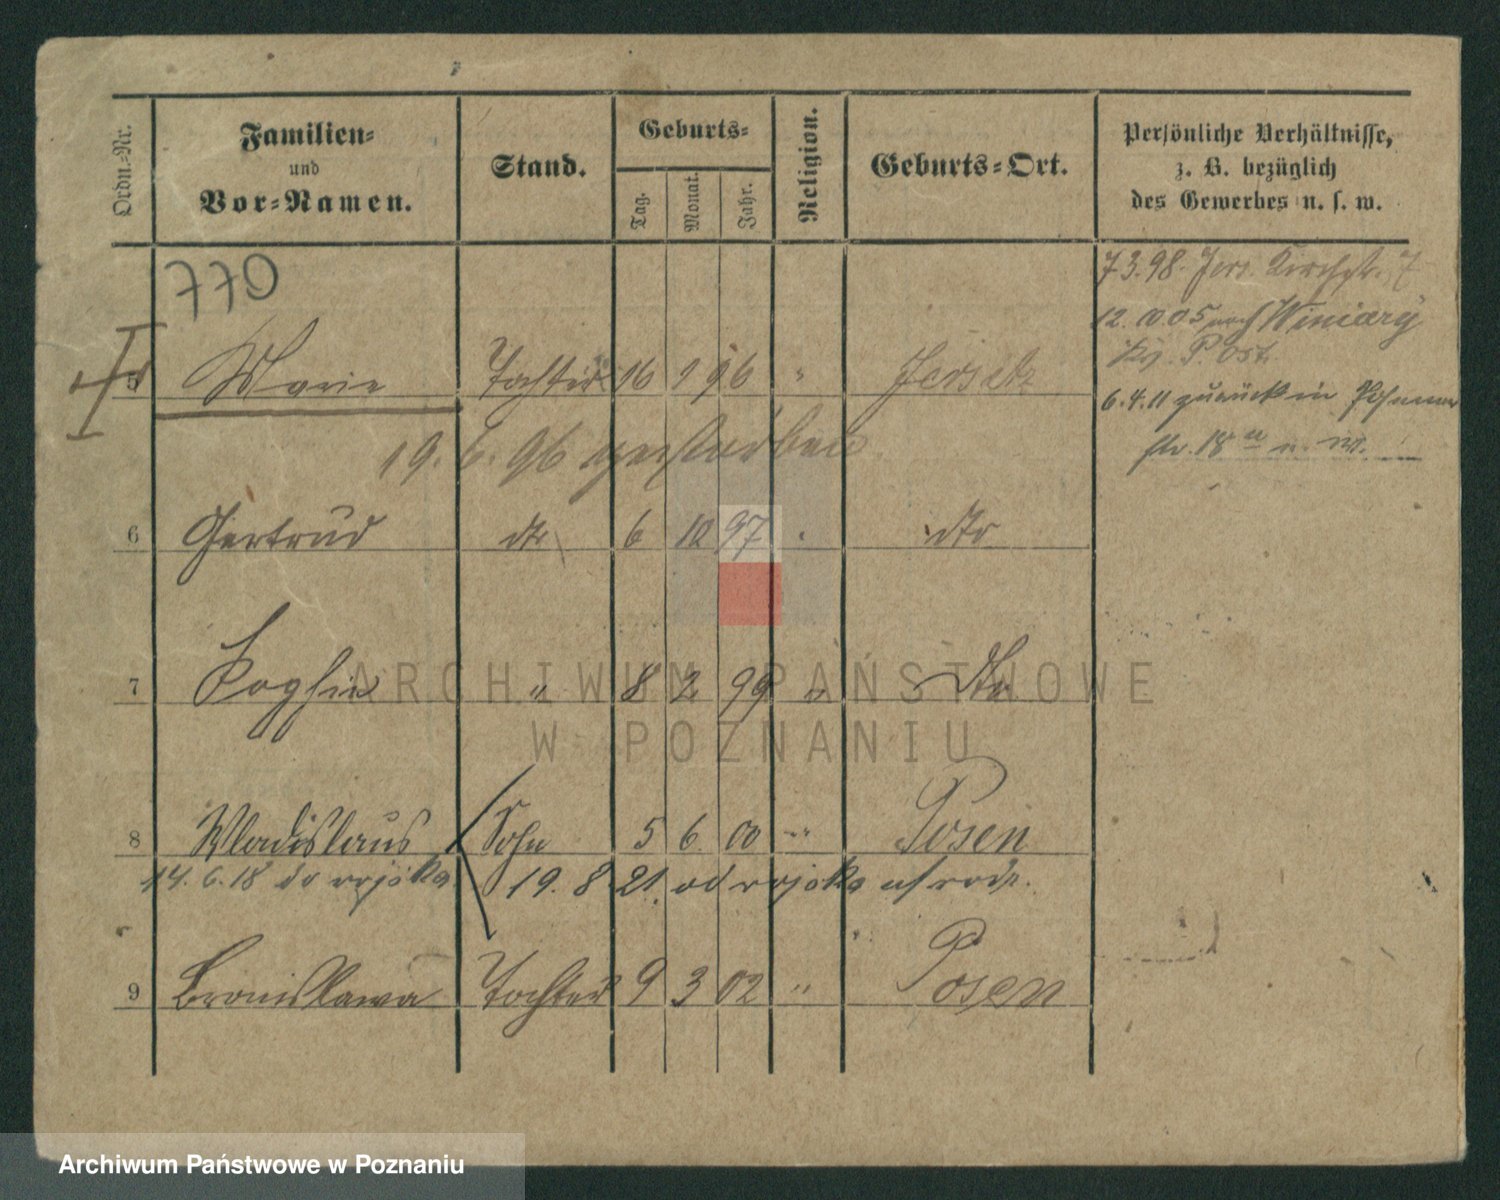 Ordn.-Nr.
Familien- und Vor-Namen.
Stand.
Geburts-
Tag.
Monat.
Jahr.
Religion.
Geburts-Ort.
Persönliche Verhältnisse,
z. B. bezüglich
des Gewerbes u. s. w.
770
7.3.98. Jers. Kirchstr. 7
12. 10.05 nach Winiary
Kr. P. Ost.
5 Marie Tochter 16 1 96 " Jersitz
6.4.11 zurück in
str. 18
19. 6. 96 gestorben
6 Gertrud dto 6 10 97 " dto
7 Sophie " 8 2 99 " dto
8 Wladislaus Sohn 5 6 00 " Posen
14. 6. 18 do wojska 19. 8. 21. od wojska
9 Bronislawa Tochter 9 3 02 " Posen
ARCHIWUM PAŃSTWOWE
W POZNANIU
Archiwum Państwowe w Poznaniu